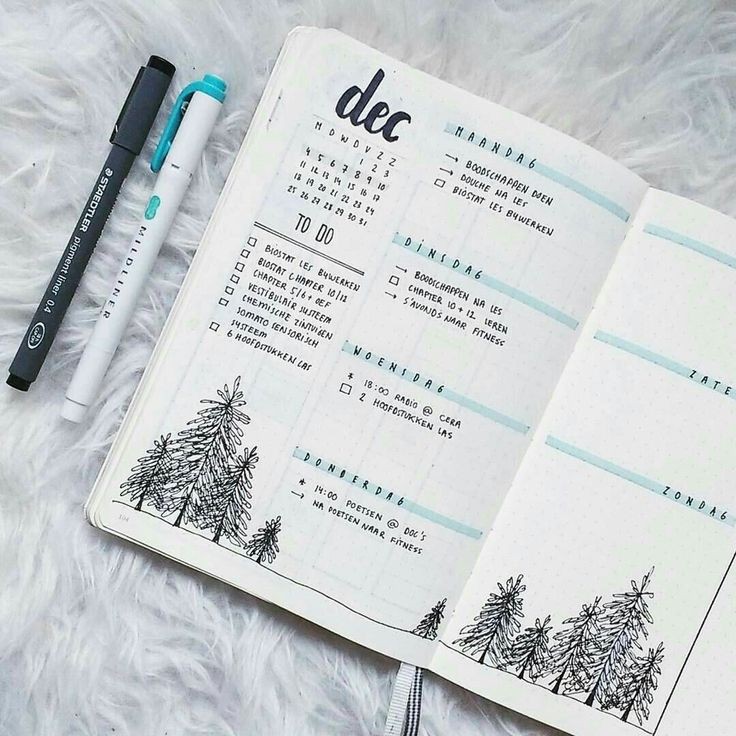 STAEDTLER
pigment liner 0.4
MILDLINER
dec
M D W D V Z Z
1 2 3
4 5 6 7 8 9 10
11 12 13 14 15 16 17
18 19 20 21 22 23 24
25 26 27 28 29 30 31
TO DO
BIOSTAT LES BYWERKEN
BIOSTAT CHAPTER 10/12
CHAPTER 5/6 + OEZ.
VESTIBULAIR SYSTEEM
CHEMISCHE ZINTUIGEN
SOMATO SENSORISCH
SYSTEEM
6 HOOFDSTUKKEN LAS
104
MAANDAG
→ BOODSCHAPPEN DOEN
→ DOUCHE NA LES
BIOSTAT LES BYWERKEN
DINSDAG
→ BOODSCHAPPEN NA LES
CHAPTER 10 + 12 LEREN
→ S'AVONDS NAAR FITNESS
WOENSDAG
* 18:00 RADIO @ CERA
2 HOOFDSTUKKEN LAS
DONDERDAG
* 14:00 POETSEN @ DOC'S
→ NA POETSEN NAAR FITNESS
ZATE
ZONDAG